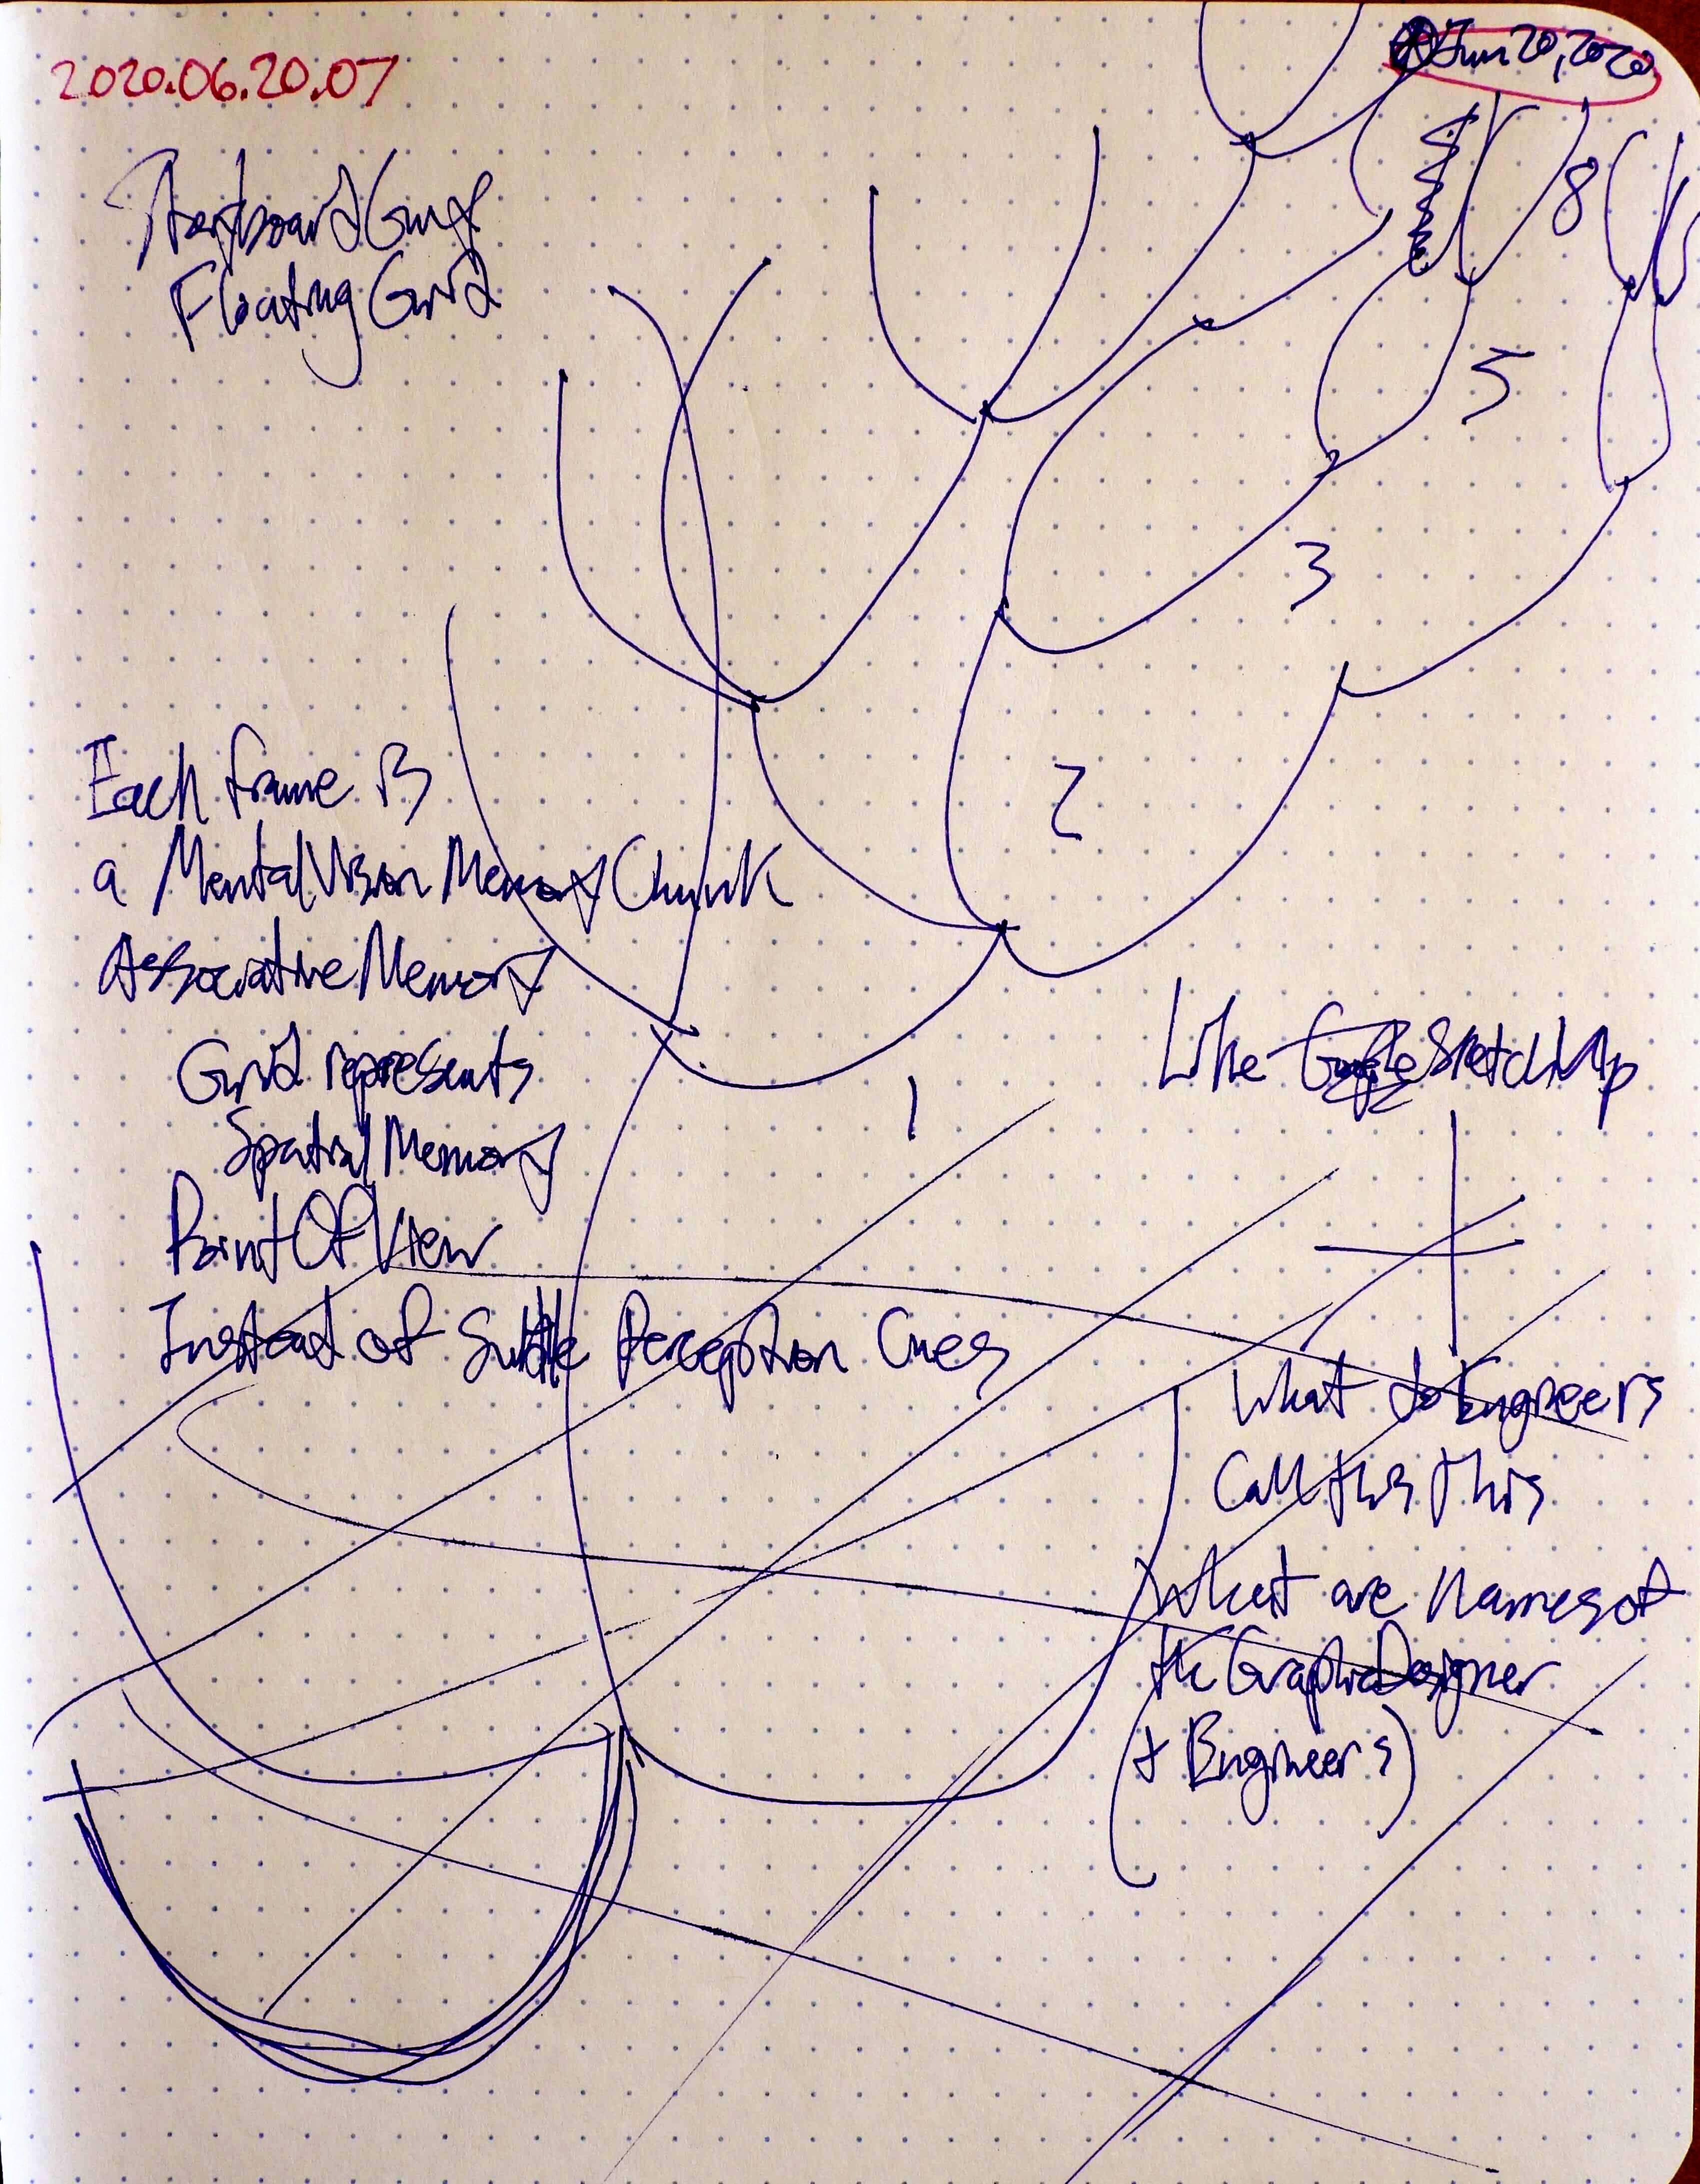 2020.06.20.07
Jun 20, 2020
Floating Grid
8
5
3
2
1
Each frame is
a MentalVision Memory Chunk
Associative Memory
Grid represents
Spatial Memory
PointOfView
Instead of Subtle Perception Cues
Like Google SketchUp
What do Engineers
Call this this
What are names of
the GraphicDesigner
(+ Engineers)